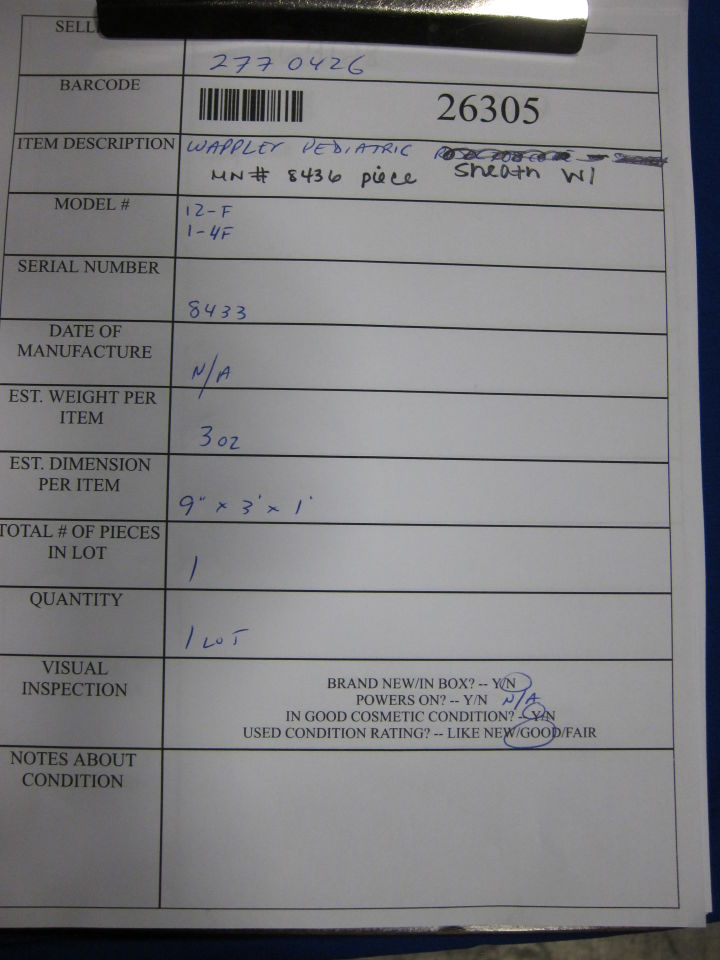 SELL
2770426
BARCODE
26305
ITEM DESCRIPTION
WAPPLEY PEDIATRIC
MN# 8436 piece Sheath W/
MODEL #
12-F
1-4F
SERIAL NUMBER
8433
DATE OF
MANUFACTURE
N/A
EST. WEIGHT PER
ITEM
3 oz
EST. DIMENSION
PER ITEM
9" x 3' x 1'
TOTAL # OF PIECES
IN LOT
1
QUANTITY
1 LOT
VISUAL
INSPECTION
BRAND NEW/IN BOX? -- Y/N
POWERS ON? -- Y/N N/A
IN GOOD COSMETIC CONDITION? -- Y/N
USED CONDITION RATING? -- LIKE NEW/GOOD/FAIR
NOTES ABOUT
CONDITION